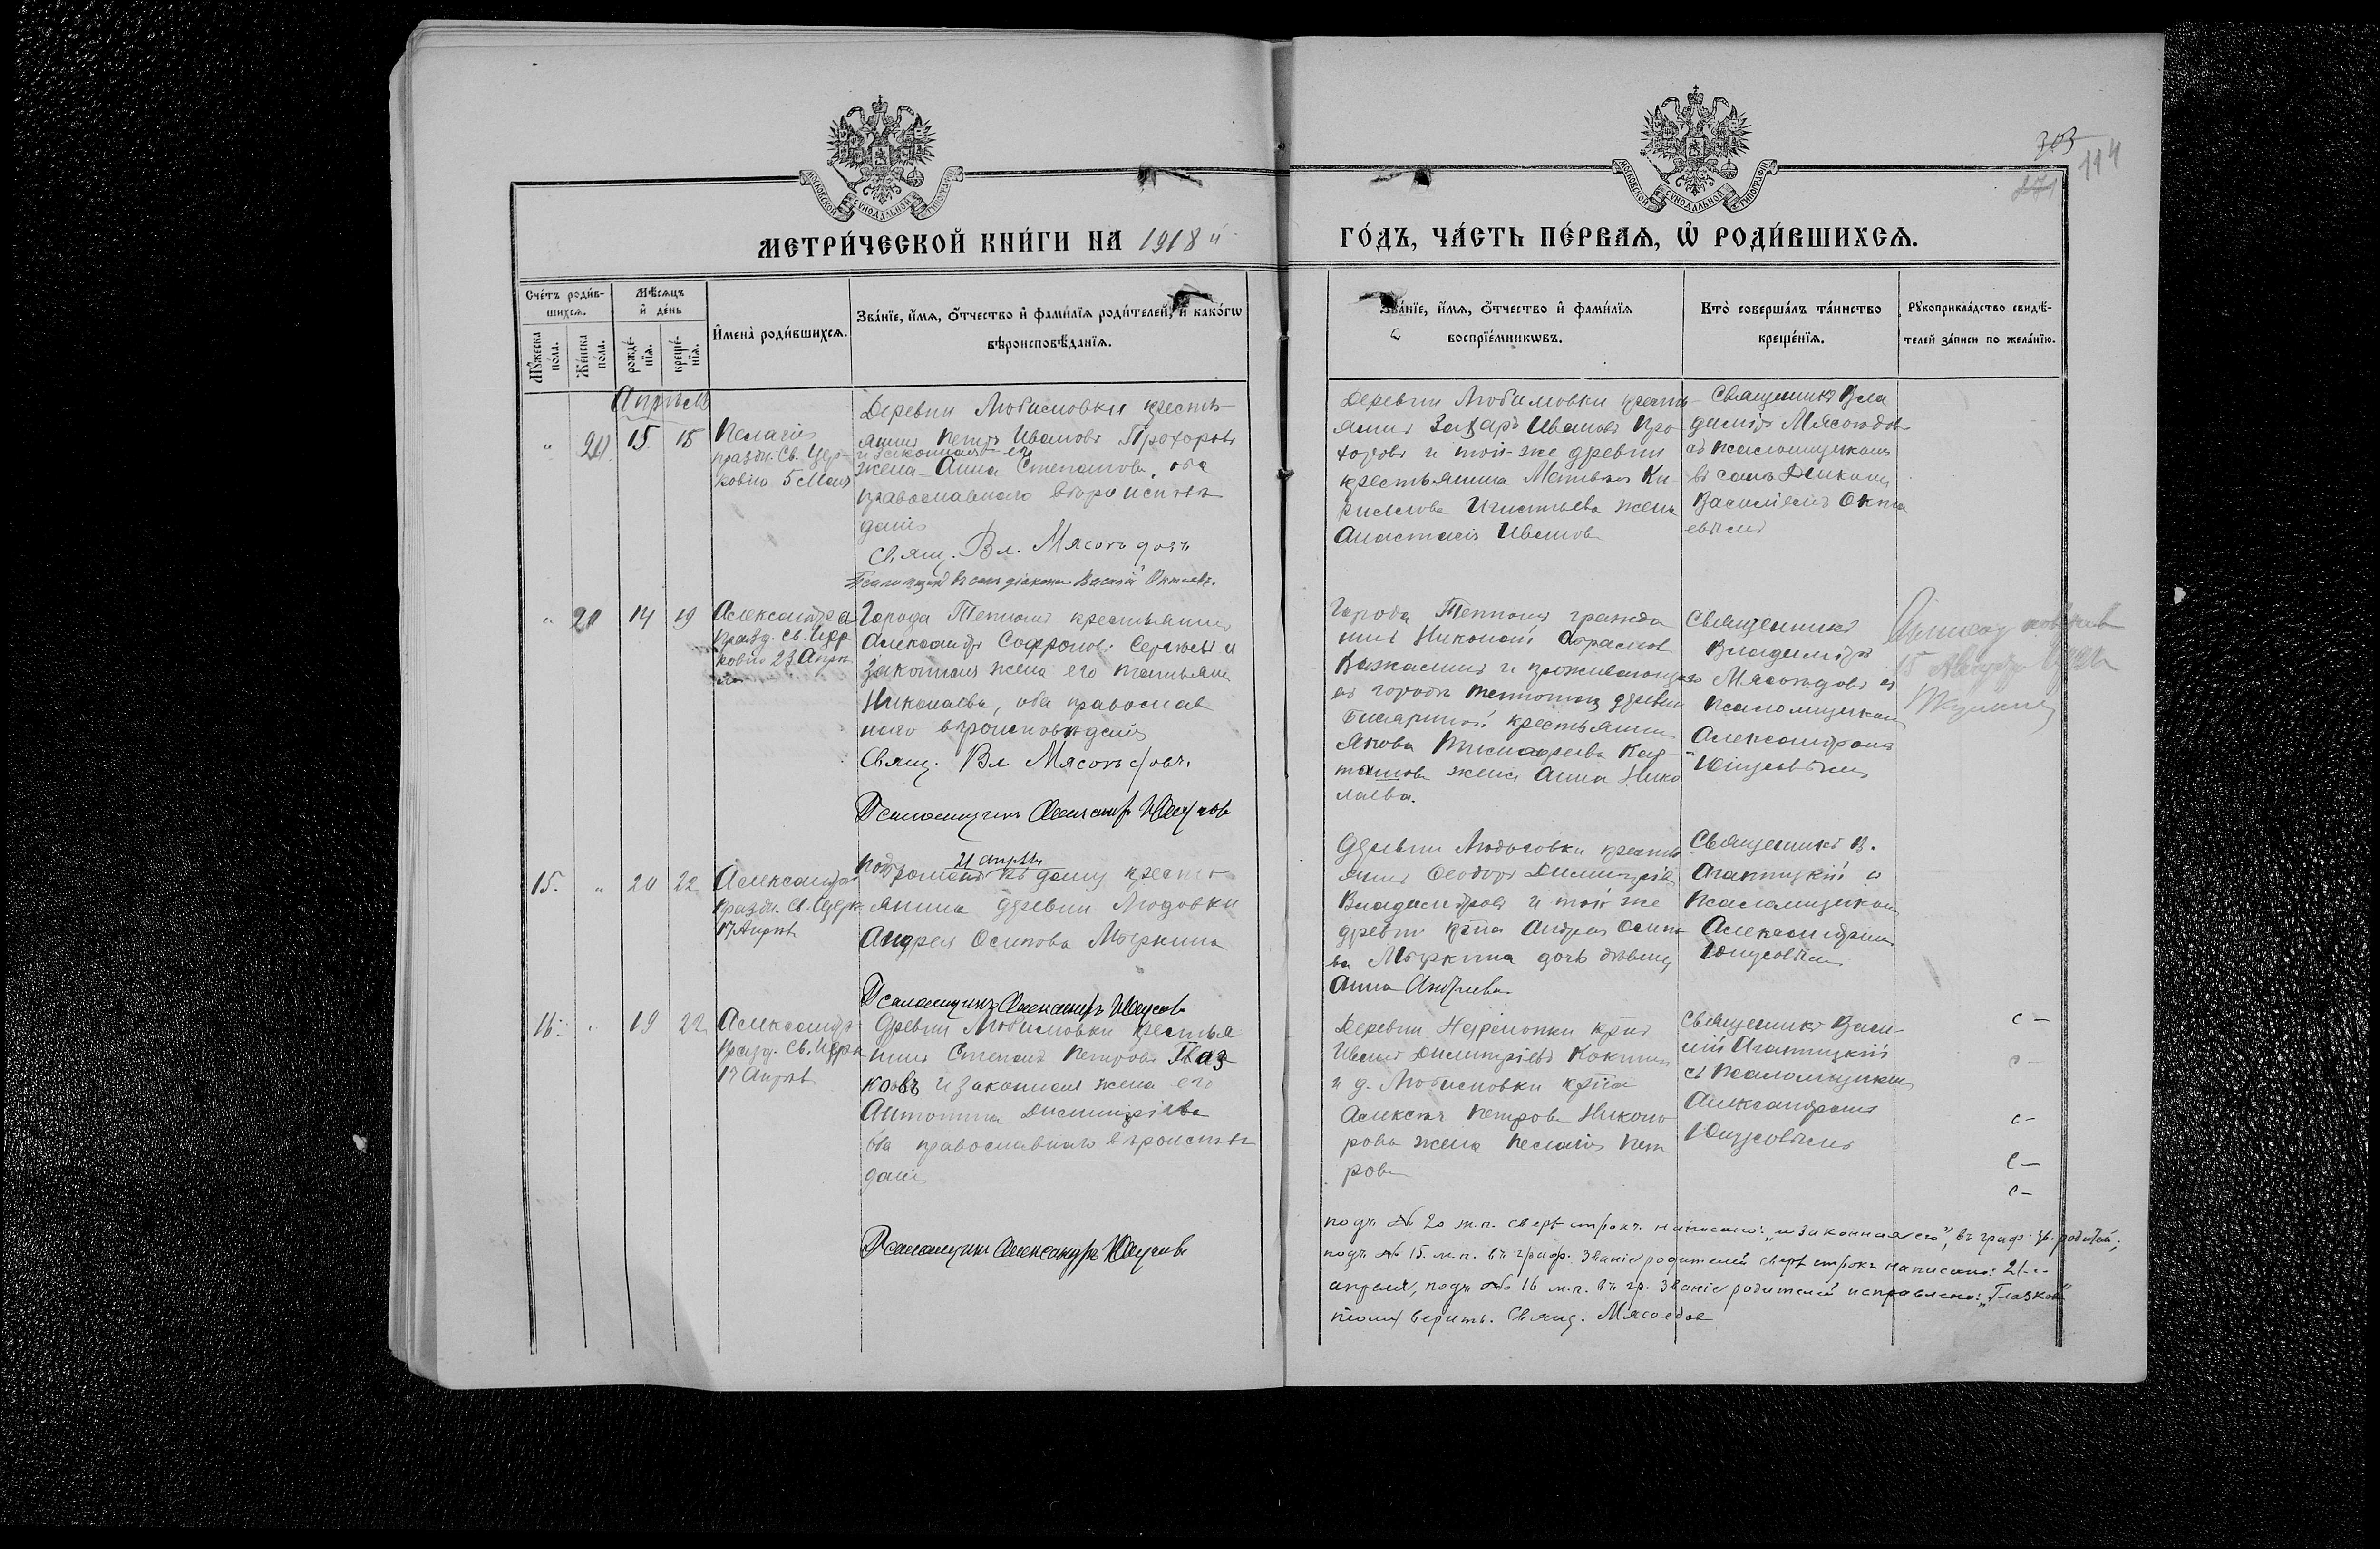 303
114
МОСКОВСКОЙ СѴНОДАЛЬНОЙ ТИПОГРАФІИ
МОСКОВСКОЙ СѴНОДАЛЬНОЙ ТИПОГРАФІИ
МЕТРИ́ЧЕСКОЙ КНИ́ГИ НА 1918 й
ГО́ДЪ, ЧА́СТЬ ПЕ́РВАѦ, Ѡ҆ РОДИ́ВШИХСѦ.
Сче́тъ роди́в-
шихсѧ.
Мѣ́сѧцъ
и҆ де́нь
Мꙋ́жеска по́ла.
Же́нска по́ла.
рожде́-
нїѧ.
креще́-
нїѧ.
И҆мена̀ роди́вшихсѧ.
Зва́нїе, и҆́мѧ, ѻ҆́тчество и҆ фами́лїѧ роди́телей, и҆ како́гѡ
вѣроисповѣ́данїѧ.
Зва́нїе, и҆́мѧ, ѻ҆́тчество и҆ фами́лїѧ
воспрїе́мникѡвъ.
Кто̀ соверша́лъ та́инство
креще́нїѧ.
Рꙋкоприкла́дство свидѣ́-
телей за́писи по жела́нїю.
Апрѣль
" 20 15 15
Пелагія
праздн. Св. Цер-
ковію 5 Мая
Деревни Любимовки кресть-
янинъ Петръ Ивановъ Прохоровъ
и законная его
жена Анна Степанова, оба
православнаго вѣроисповѣ
данія
Свящ. Вл. Мясоѣдовъ
Псаломщикъ въ санѣ діакона Василій Октаевъ.
Деревни Любимовки кресть-
янинъ Захаръ Ивановъ Про
хоровъ и той-же древни
крестьянина Матвѣя Ки-
риллова Игнатьева жена
Анастасія Иванова
Священникъ Вла
диміръ Мясоѣдовъ
съ псаломщикомъ
въ санѣ Діакона
Василіемъ Окта
евымъ
" 21 14 19
Александра
празд. Св. Цер
ковію 23 Апрѣ
ля
Города Тетюшъ крестьянинъ
Александръ Софронов. Сергѣевъ и
законная жена его Татьяна
Николаева, оба православ
наго вѣроисповѣданія
Свящ. Вл. Мясоѣдовъ.
Псаломщикъ Александръ Юнусовъ
Города Тетюшъ гражда
нинъ Николай
и проживающая
въ городѣ Тетюшахъ древни
крестьянина
Якова
жена Анна Нико
лаева.
Священникъ
Владиміръ
Мясоѣдовъ съ
псаломщикомъ
Александромъ
Юнусовымъ
15. " 20 22
Александръ
праздн. Св. Церк
17 Апрѣл
21 апрѣля
въ дому кресть
янина деревни Людовки
Андрея Осипова Моркина
Псаломщикъ Александръ Юнусовъ
Деревни Людоговки кресть
янинъ Ѳеодоръ Димитріев
Владиміровъ и той же
древни кр̃на Андрея Осипо
ва Моркина дочь дѣвица
Анна Андреева
Священникъ В.
Агатицкій съ
Псаломщикомъ
Александромъ
Юнусовымъ
16. " 19 22
Александръ
празд. Св. Церк
17 Апрѣл
Древни Любимовки крестья
нинъ Степанъ Петровъ Глаз-
ковъ и законная жена его
Антонина Димитріева
оба православнаго вѣроисповѣ
данія
Псаломщикъ Александръ Юнусовъ
Иванъ Димитріевъ Коктинъ
и д. Любимовки кр̃на
Алексѣя Петрова Никоно
рова жена Пелагія Пет
рова
Священникъ Васи-
лій Агатицкій
съ Псаломщикомъ
Александромъ
Юнусовымъ
подъ № 20 ж.п. сверх строкъ написано: „и законная его", въ граф. зв. родителей;
подъ № 15 м.п. въ граф. званіе родителей сверх строкъ написано: 21
апрѣля, подъ № 16 м.п. въ гр. званіе родителей исправлено: „Глазковъ"
тому верить. Свящ. Мясоѣдов